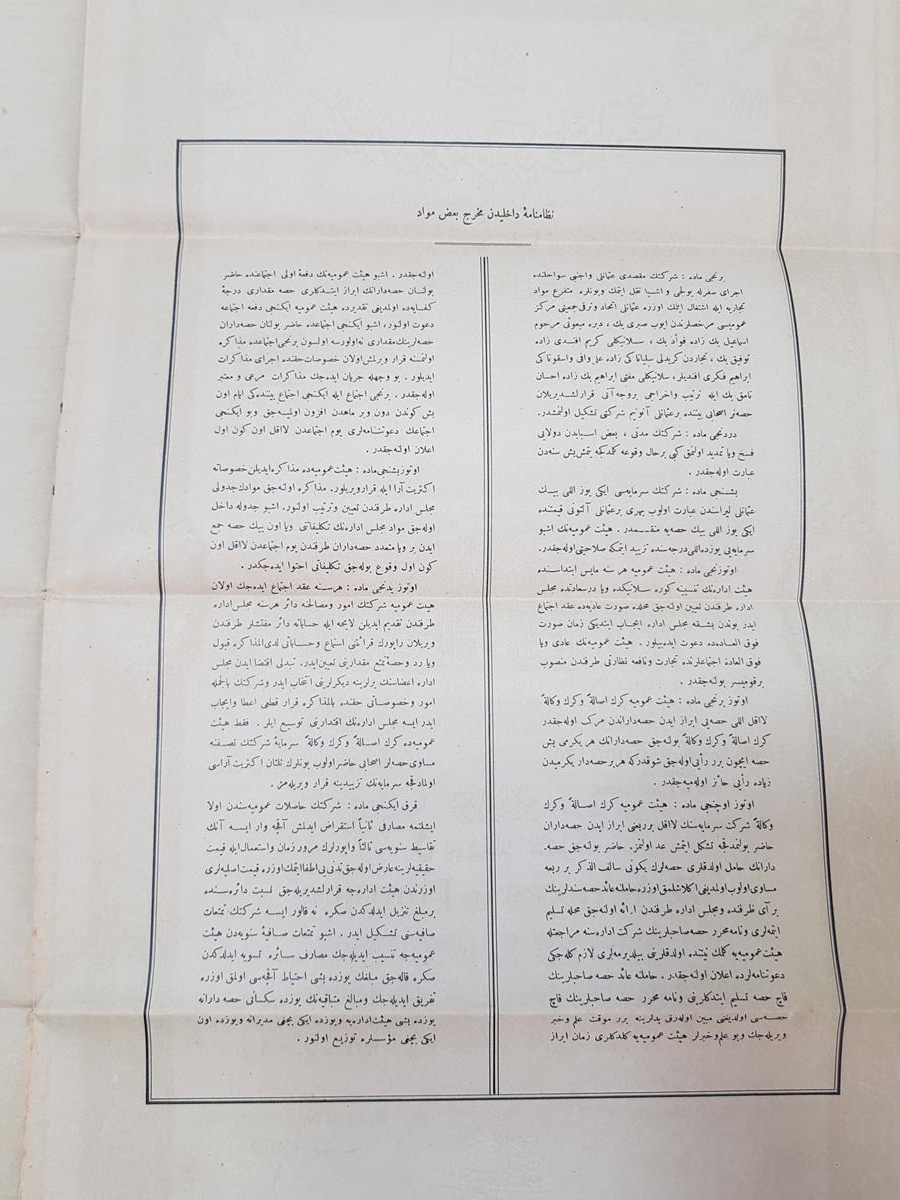 نظامنامهٔ داخلیدن مخرج بعض مواد
برنجی ماده : شرکتك مقصدی عثمانلی واجنبی سواحلنده
اجرای سفرله یولجی و اشیا نقل ایتمك وبونلره متفرع مواد
تجاریه ایله اشتغال ایتمك اوزره عثمانلی اتحاد وترقی جمعیتی مرکز
عمومیسی مرخصلرندن ایوب صبری بك ، دیره مبعوثی مرحوم
اسماعیل بك زاده فوأد بك ، سلانیکلی کریم افندی زاده
توفیق بك ، تجاردن کریدلی سلیاناکی زاده علی وافی واسقوناکی
ابراهیم فکری افندیلر ، سلانیکلی مفتی ابراهیم بك زاده احسان
نامق بك ایله ترتیب واخراجی بروجه آتی قرارلشدیریلان
حصه‌لر اصحابی بیننده برعثمانلی آنونیم شرکتی تشکیل اولنمشدر.
دردنجی ماده : شرکتك مدتی ، بعض اسبابدن دولایی
فسخ ویا تمدید اولنمق کبی برحال وقوعه کلمدکجه یتمش بش سنه‌دن
عبارت اوله‌جقدر .
بشنجی ماده : شرکتك سرمایه‌سی ایکی یوز اللی بیك
عثمانلی لیراسندن عبارت اولوب بهری برعثمانلی آلتونی قیمتنده
ایکی یوز اللی بیك حصه‌یه منقسمدر . هیئت عمومیه‌نك اشبو
سرمایه‌یی یوزده‌اللی درجه‌سنده تزیید ایتمکه صلاحیتی اوله‌جقدر.
اوتوزنجی ماده : هیئت عمومیه هر سنه مایس ابتداسنده
هیئت اداره‌نك تنسیبنه کوره سلانیکده ویا درسعادتده مجلس
اداره طرفندن تعیین اوله‌جق محلده صورت عادیه‌ده عقد اجتماع
ایدر بوندن بشقه مجلس اداره ایجاب ایتدیکی زمان صورت
فوق العاده‌ده دعوت ایده‌بیلور . هیئت عمومیه‌نك عادی ویا
فوق العاده اجتماعلرنده تجارت ونافعه نظارتی طرفندن منصوب
برقومیسر بوله‌جقدر .
اوتوز برنجی ماده : هیئت عمومیه کرك اصالةً وکرك وکالةً
لااقل اللی حصه‌یی ابراز ایدن حصه‌داراندن مرکب اوله‌جقدر
کرك اصالةً وکرك وکالةً بوله‌جق حصه‌دارانك هر یکرمی بش
حصه ایچون برر رأیی اوله‌جق شوقدرکه هربرحصه‌دار یکرمیدن
زیاده رأیی حائز اوله‌میه‌جقدر .
اوتوز اوچنجی ماده : هیئت عمومیه کرك اصالةً وکرك
وکالةً شرکت سرمایه‌سنك لااقل برربعنی ابراز ایدن حصه‌داران
حاضر بولنمدقجه تشکل ایتمش عد اولنمز. حاضر بوله‌جق حصه
دارانك حامل اولدقلری حصه‌لرك یکونی سالف الذکر بر ربعه
مساوی‌اولوب‌اولمدیغی اکلاشلمق‌اوزره‌حاملنه‌عائد حصه‌سندلرینك
بر آی ظرفنده ومجلس اداره طرفندن ارائه اوله‌جق محله تسلیم
ایتمه‌لری ونامه‌محرر حصه‌صاحبلرینك شرکت اداره‌سنه مراجعتله
هیئت‌عمومیه‌یه کلمك نیتنده اولدقلرینی بیلدیرمه‌لری لازم کله‌جکی
دعوتنامه‌لرده اعلان اوله‌جقدر . حاملنه عائد حصه صاحبلرینك
قاچ حصه تسلیم ایتدکلرینی ونامه محرر حصه صاحبلرینك قاچ
حصه‌سی اولدیغنی مبین اوله‌رق یدلرینه برر موقت علم وخبر
ویریله‌جك وبو علم‌وخبرلر هیئت عمومیه‌یه کلدکلری زمان ابراز
اوله‌جقدر . اشبو هیئت عمومیه‌نك دفعهٔ اولی اجتماعنده حاضر
بولنان حصه‌دارانك ابراز ایتدکلری حصه مقداری درجهٔ
کفایه‌ده اولمدیغی تقدیرده هیئت عمومیه ایکنجی دفعه اجتماعه
دعوت اولنور، اشبو ایکنجی اجتماعده حاضر بولنان حصه‌داران
حصه‌لرینك‌مقداری نه‌اولورسه اولسون برنجی‌اجتماعده مذاکره
اولنمسنه قرار ویرلمش‌اولان خصوصات‌حقنده اجرای مذاکرات
ایدیلور . بو وجهله جریان ایده‌جك مذاکرات مرعی و معتبر
اوله‌جقدر . برنجی اجتماع ایله ایکنجی اجتماع بیننده‌کی ایام اون
بش کوندن دون وبر ماهدن افزون اولمیه‌جق وبو ایکنجی
اجتماعك دعوتنامه‌لری یوم اجتماعدن لااقل اون کون اول
اعلان اوله‌جقدر .
اوتوزبشنجی‌ماده : هیئت‌عمومیه‌ده مذاکره‌ایدیلن‌خصوصاته
اکثریت‌آرا ایله قرارویریلور. مذاکره اوله‌جق موادك‌جدولی
مجلس اداره طرفندن تعیین وترتیب اولنور. اشبو جدوله داخل
اوله‌جق مواد مجلس اداره‌نك تکلیفاتنی ویا اون بیك حصه جمع
ایدن بر ویا متعدد حصه‌داران طرفندن یوم اجتماعدن لااقل اون
کون اول وقوع بوله‌جق تکلیفاتی احتوا ایده‌جکدر .
اوتوز یدنجی ماده : هرسنه عقد اجتماع ایده‌جك اولان
هیئت عمومیه شرکتك امور ومصالحنه دائر هرسنه مجلس‌اداره
طرفندن تقدیم ایدیلن لایحه ایله حساباته دائر مفتشلر طرفندن
ویریلان راپورك قرائتنی استماع وحساباتی لدی‌المذاکره قبول
ویا رد وحصهٔ تمتع مقدارینی تعیین‌ایدر. تبدلی اقتضا ایدن مجلس
اداره اعضاسنك یرلرینه دیکرلرینی انتخاب ایدر وشرکتك بالجمله
امور وخصوصاتی حقنده بالمذاکره قرار قطعی اعطا وایجاب
ایدر ایسه مجلس اداره‌نك اقتدارینی توسیع ایلر . فقط هیئت
عمومیه‌ده کرك اصالةً وکرك وکالةً سرمایهٔ شرکتك نصفنه
مساوی‌حصه‌لر اصحابی حاضراولوب بونلرك ثلثان اکثریت آراسی
اولمادقجه سرمایه‌نك تزییدینه قرار ویریله‌مز .
قرق ایکنجی ماده : شرکتك حاصلات عمومیه‌سندن اولا
ایشلتمه مصارفی ثانیاً استقراض ایدلمش آقچه وار ایسه آنك
تقاسیط سنویه‌سی ثالثاً واپورلرك مرور زمان واستعمال‌ایله قیمت
حقیقیه‌لرینه‌عارض‌اوله‌جق‌تدنی‌یی‌اطفاایتمك‌اوزره قیمت‌اصلیه‌لری
اوزرندن هیئت اداره‌جه قرارلشدیریله‌جق نسبت دائره‌سنده
برمبلغ تنزیل ایدلدکدن صکره نه قالور ایسه شرکتك تمتعات
صافیه‌سنی تشکیل ایدر . اشبو تمتعات صافیهٔ سنویه‌دن هیئت
عمومیه‌جه تنسیب ایدیله‌جك مصارف سائره تسویه ایدلدکدن
صکره قاله‌جق مبلغك یوزده بشی احتیاط آقچه‌سی اولمق اوزره
تفریق ایدیله‌جك ومبالغ متباقیه‌نك یوزده سکسانی حصه دارانه
یوزده بشی هیئت‌اداره‌یه ویوزده ایکی بچغی مدیرانه ویوزده اون
ایکی بچغی مؤسسلره توزیع اولنور .